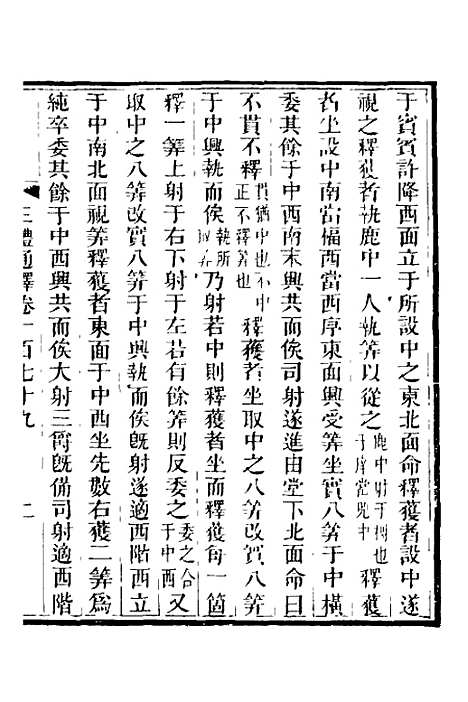 于賓賓許降西面立于所設中之東北面命釋獲者設中遂
視之釋獲者執鹿中一人執筭以從之鹿中謂射于榭也于庠當兕中釋獲
者坐設中南當楅西當西序東面興受筭坐實八筭于中橫
委其餘于中西南末興共而俟司射遂進由堂下北面命曰
不貫不釋貫猶中也不中正不釋筭也釋獲者坐取中之八筭改實八筭
于中興執而俟執所取筭乃射若中則釋獲者坐而釋獲每一箇
釋一筭上射于右下射于左若有餘筭則反委之委之合于中西又
取中之八筭改實八筭于中興執而俟旣射遂適西階西立
于中南北面視筭釋獲者東面于中西坐先數右獲二筭爲
純卒委其餘于中西興共而俟大射三爵旣備司射適西階
三禮通釋卷一百七十九 二